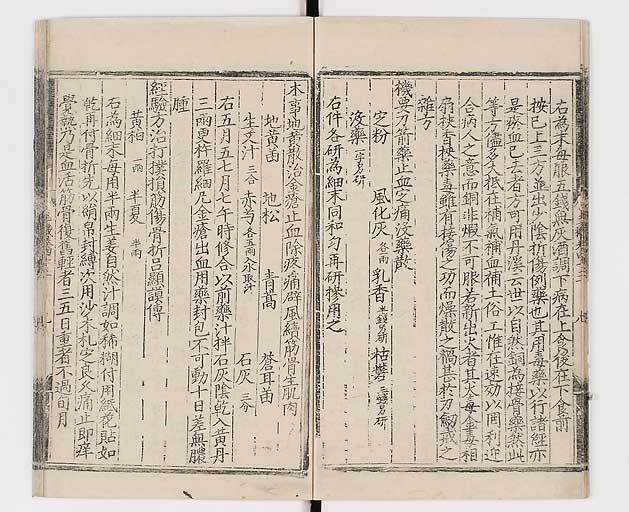 右為末每服五錢無灰酒調下病在上食後在下食前
按已上三方並出少陰折傷例藥也其用毒藥以行諸經亦
是瘀血已去者方可用丹溪云世以自然銅為接骨藥然此
等方儘多大抵在補氣補血補土俗工惟在速効以罔利迎
合病人之意而銅非煆不可服若新出火者其火毒金毒相
扇挾香挾藥毒雖有接傷之功而燥散之禍甚於刀劒戒之
雜方
機要刀箭藥止血之痛沒藥散
定粉 風化灰 各一兩 乳香 半錢另研 枯礬 三錢另研
沒藥 一字另研
右件各研為細末同和勻再研摻用之
木事地黃散治金瘡止血除疼痛辟風續筋骨生肌肉
地黃苗 地松 青蒿 蒼耳苗
生艾汁 三合 赤芍 各五兩水煎汁 石灰 三分
右五月五七月七午時修合以前藥汁拌石灰陰乾入黃丹
三兩更杵羅細凡金瘡出血用藥封包不可動十日差無膿
腫
經驗方治打撲損筋傷骨折呂顯謨傳
黃栢 一兩 半夏 半兩
右為細末每用半兩生姜自然汁調如稀糊付用紙花貼如
乾再付骨折先以絹帛封縛次用沙木札定良久痛止即痒
覺熱乃是血活筋骨復舊輕者三五日重者不過旬月